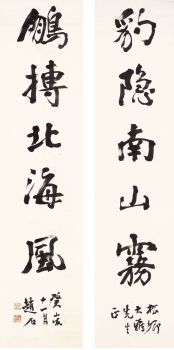 豹隐南山霧
松卿
大雅
先生
正
鵬搏北海風
癸亥
十一月
趙石